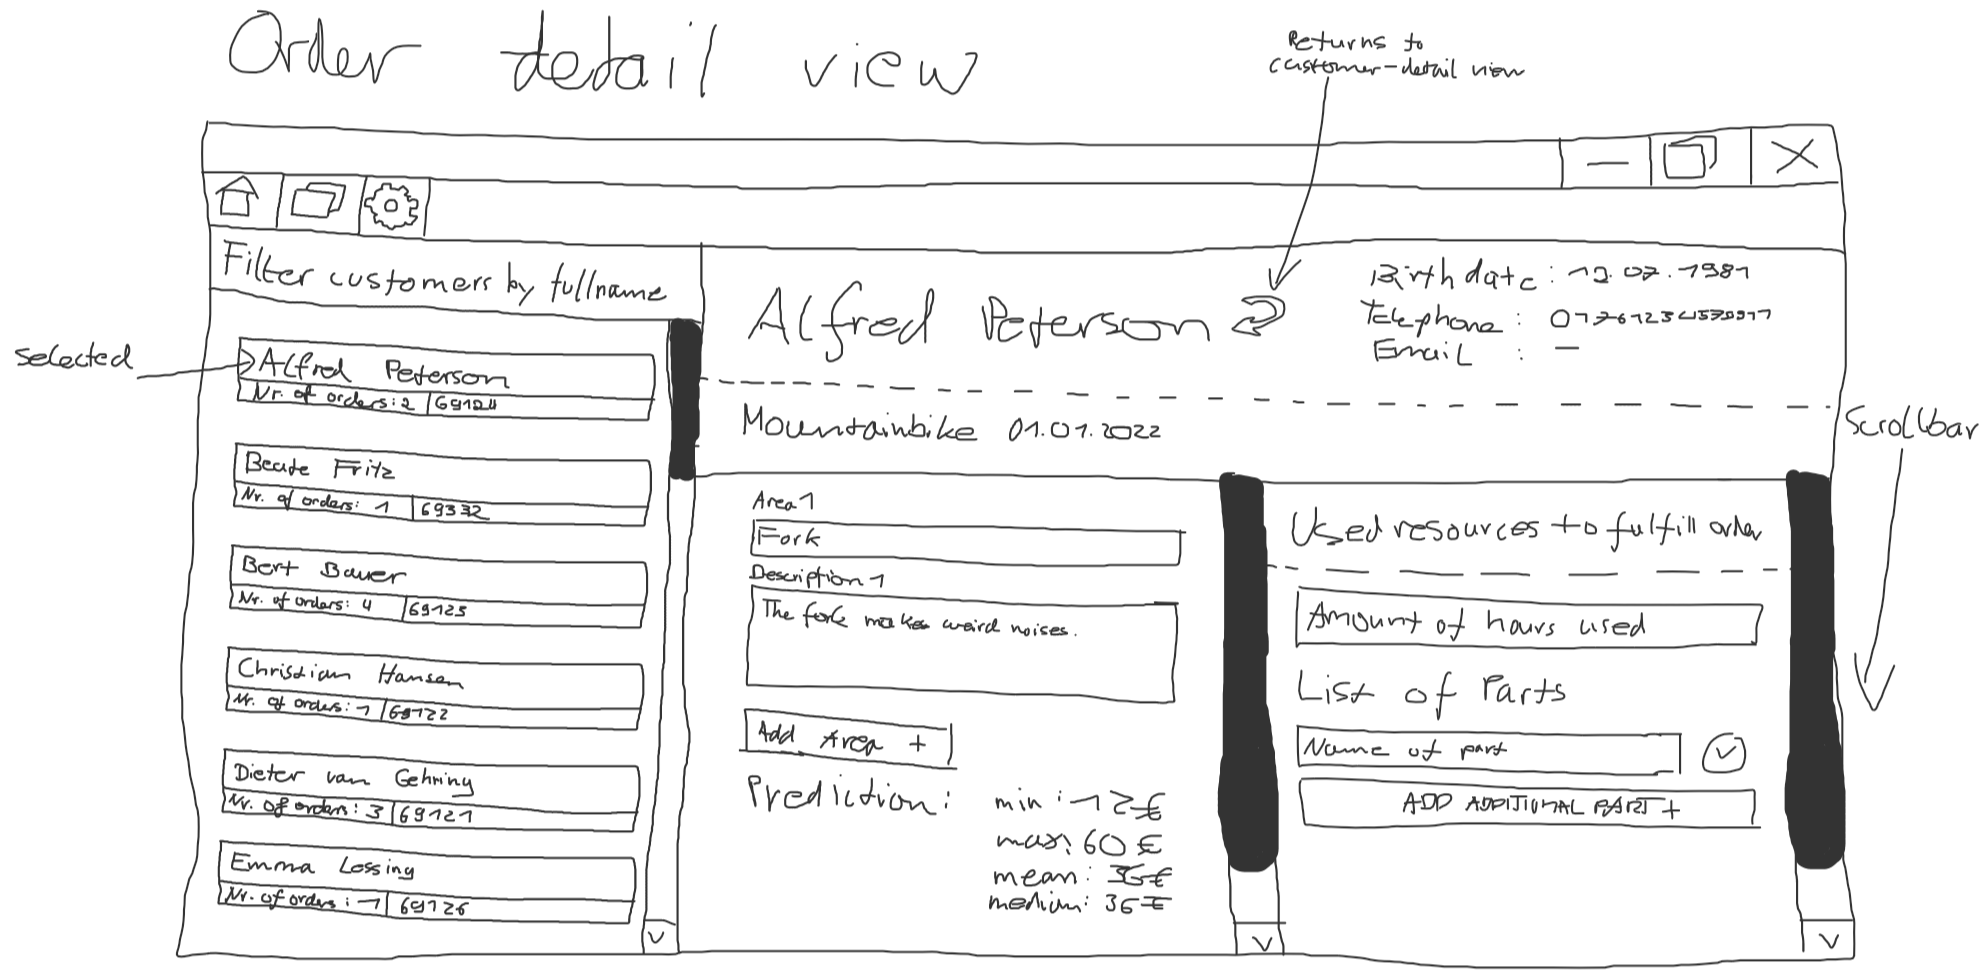 Order detail view
Returns to
customer-detail view
Filter customers by fullname
selected
Alfred Peterson
Nr. of orders: 2 69124
Beate Fritz
Nr. of orders: 1 69332
Bert Bauer
Nr. of orders: 4 69125
Christian Hansen
Nr. of orders: 1 69122
Dieter van Gehring
Nr. of orders: 3 69121
Emma Lossing
Nr. of orders: 1 69126
Alfred Peterson
Birthdate: 12.07.1981
Telephone:
Email : –
Mountainbike 01.01.2022
Scrollbar
Area 1
Fork
Description 1
The fork makes weird noises.
Add Area +
Prediction: min: 12€
max: 60€
mean: 36€
medium: 36€
Used resources to fulfill order
Amount of hours used
List of Parts
Name of part
ADD ADDITIONAL PART +